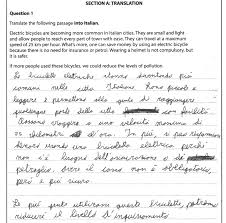 SECTION A: TRANSLATION
Question 1
Translate the following passage into Italian.
Electric bicycles are becoming more common in Italian cities. They are small and light
and allow people to reach every part of town with ease. They can travel at a maximum
speed of 25 km per hour. What's more, one can save money by using an electric bicycle
because there is no need for insurance or petrol. Wearing a helmet is not compulsory but
it is safer.
If more people used these bicycles, we could reduce the levels of pollution.
Le biciclette elettriche stanno diventando più
comuni nelle città Italiane. Sono piccole e
leggere e permettono alla gente di raggiungere
qualunque parte della città con facilità.
Possono viaggiare a una velocità massima di
25 chilometri all'ora. In più, si può risparmiare
usando una bicicletta elettrica perché
non c'è bisogno dell'assicurazione o di
petrolio. non è obbligatorio,
però è più sicuro.
Se più gente utilizzasse queste biciclette, potremmo
ridurre il livello d'inquinamento.